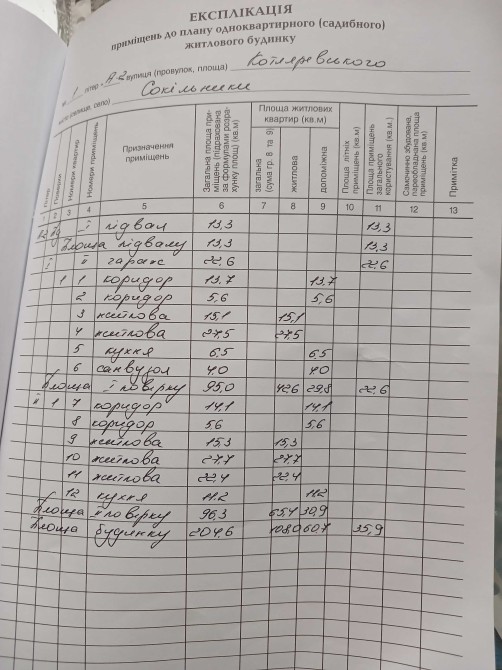 ЕКСПЛІКАЦІЯ
приміщень до плану одноквартирного (садибного)
житлового будинку
літер А-2 вулиця (провулок, площа) Котляревського
місто (селище, село) Сокільники
Літер
Поверхи
Номери квартир
Номери приміщень
Призначення приміщень
Загальна площа приміщень (підрахована за формулами розрахунку площ) (кв.м)
Площа житлових квартир (кв.м)
загальна (сума гр. 8 та 9)
житлова
допоміжна
Площа літніх приміщень (кв.м)
Площа приміщень загального користування (кв.м.)
Самочинно збудована, переобладнана площа приміщень (кв.м)
Примітка
1 2 3 4 5 6 7 8 9 10 11 12 13
А2 пд І підвал 13,3 13,3
Площа підвалу 13,3 13,3
І ІІ гараж 22,6 22,6
1 1 коридор 13,7 13,7
2 коридор 5,6 5,6
3 житлова 15,1 15,1
4 житлова 27,5 27,5
5 кухня 6,5 6,5
6 санвузол 4,0 4,0
Площа І поверху 95,0 42,6 29,8 22,6
ІІ 1 7 коридор 14,1 14,1
8 коридор 5,6 5,6
9 житлова 15,3 15,3
10 житлова 27,7 27,7
11 житлова 22,4 22,4
12 кухня 11,2 11,2
Площа ІІ поверху 96,3 65,4 30,9
Площа будинку 204,6 108,0 60,7 35,9